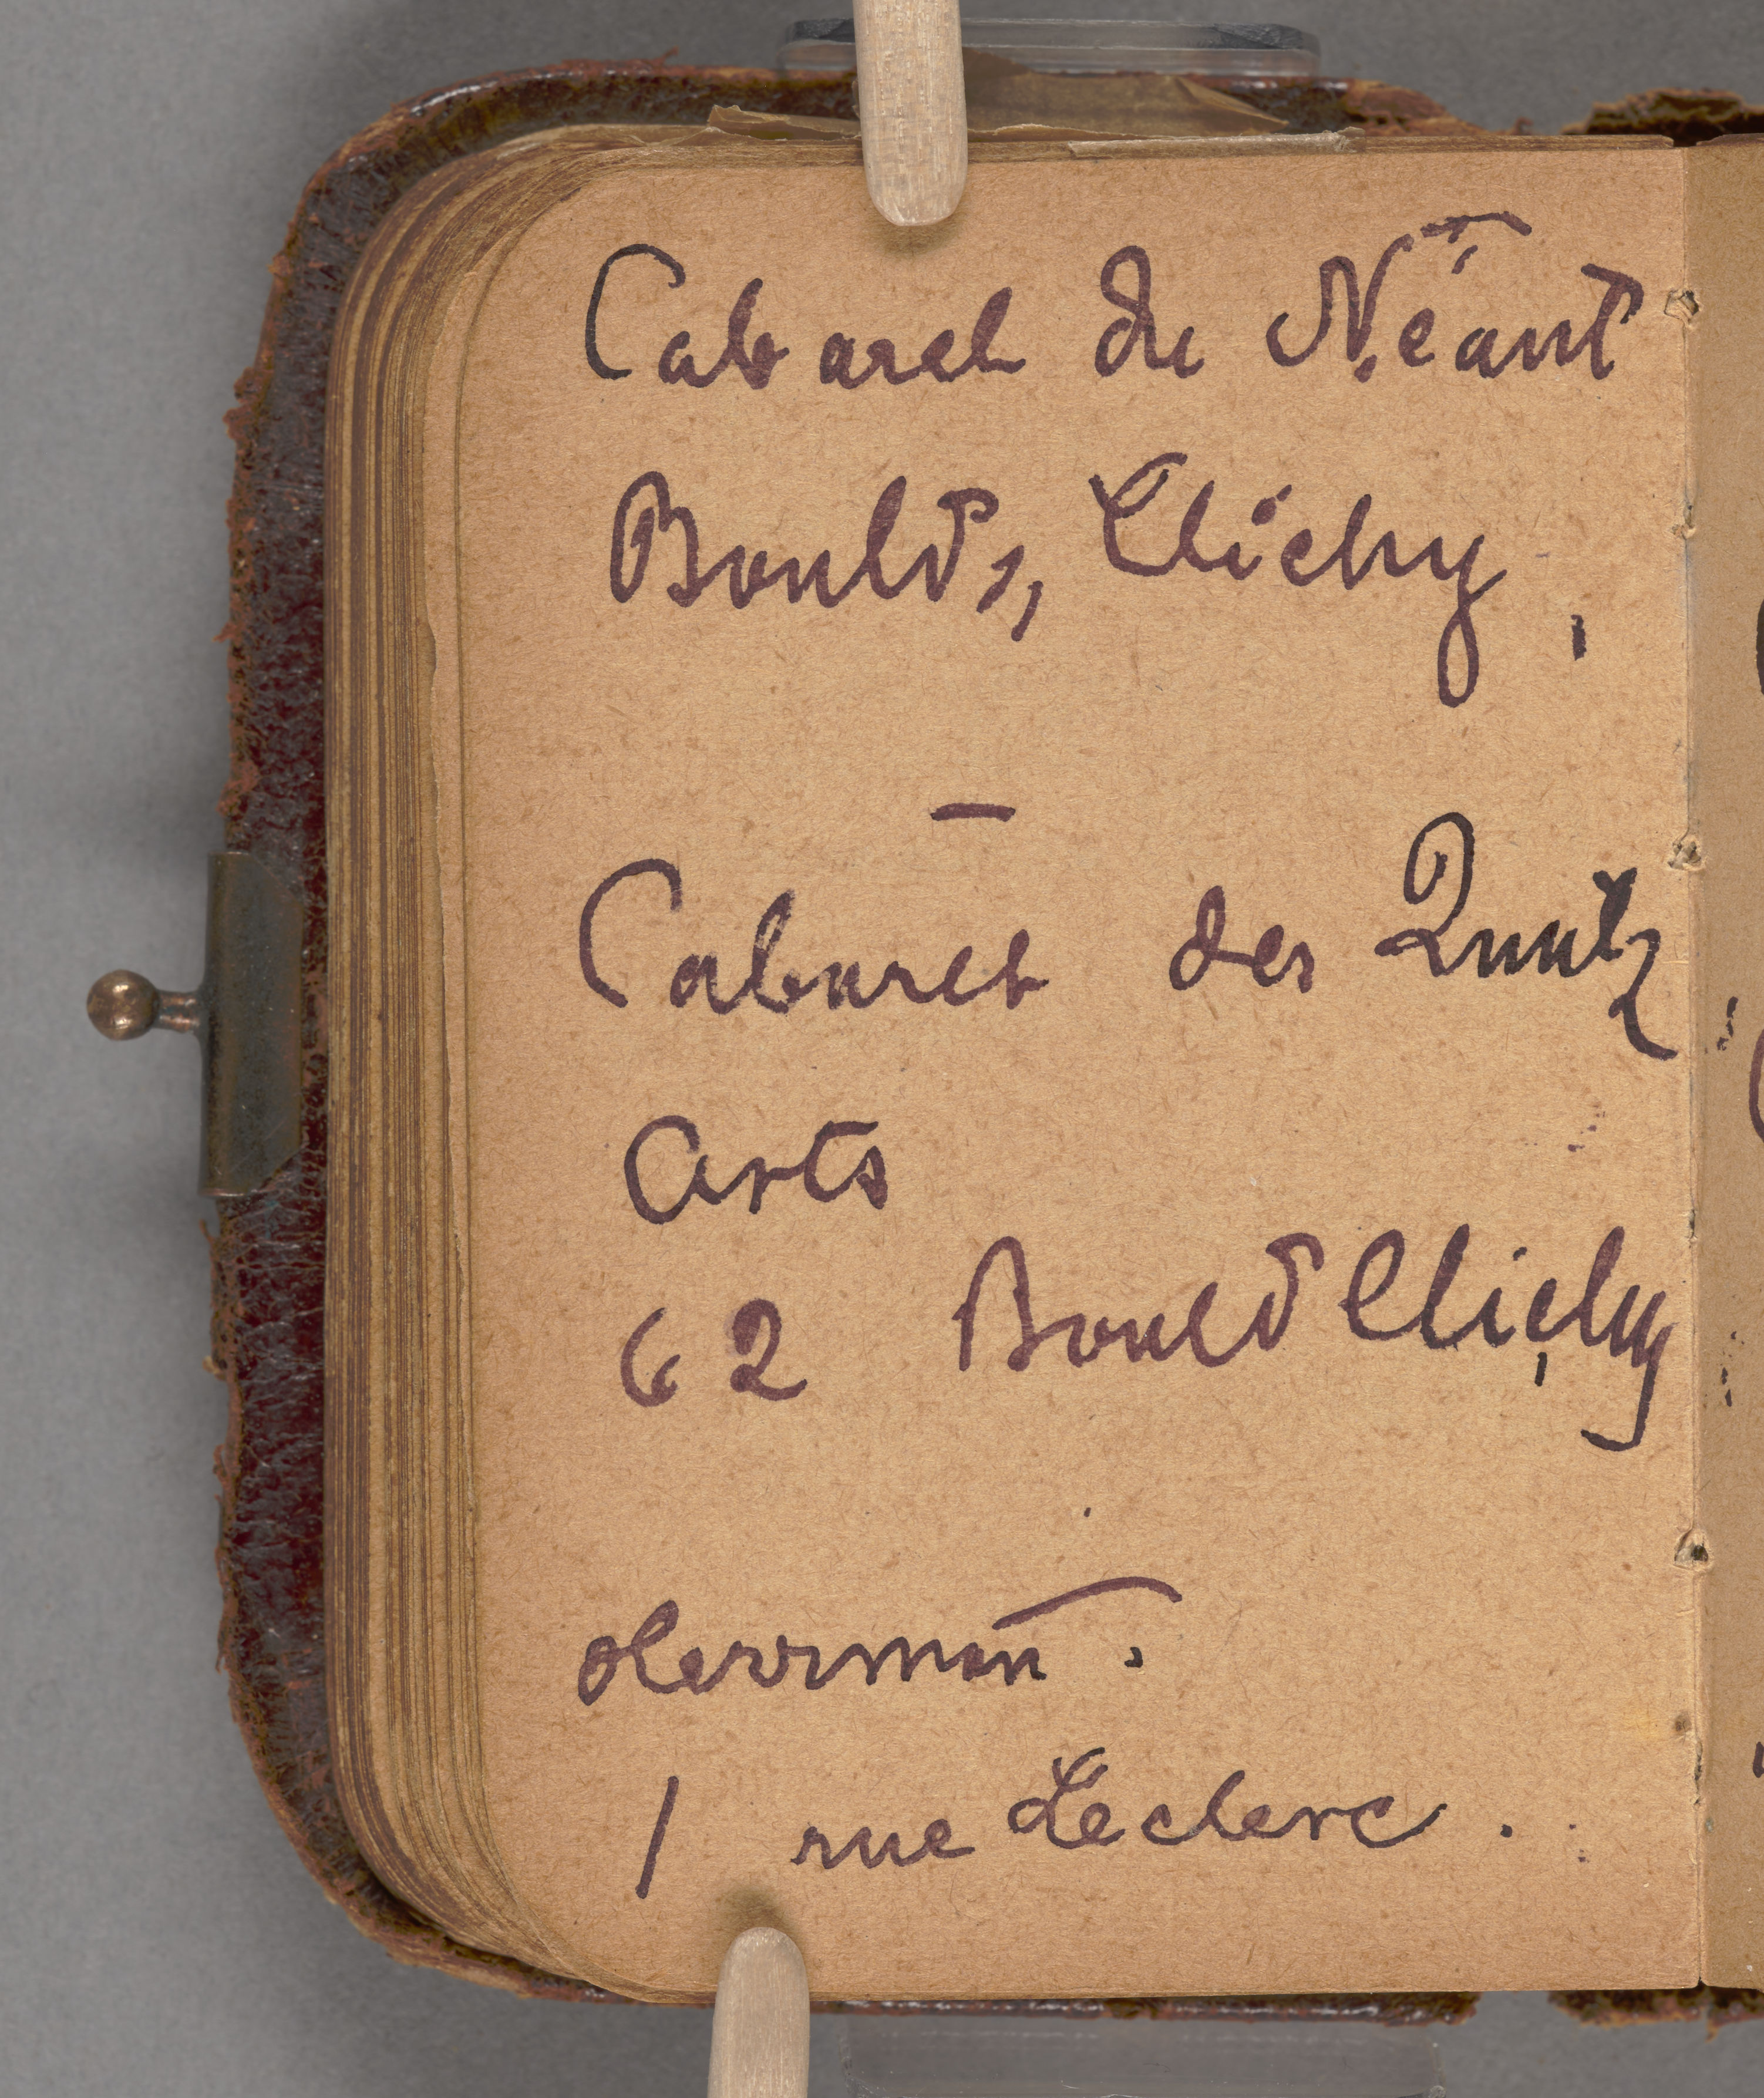 Cabaret du Néant
Bould, Clichy,
—
Cabaret des Quatz
Arts
62 Bould Clichy
Herrman.
1 rue Leclerc.